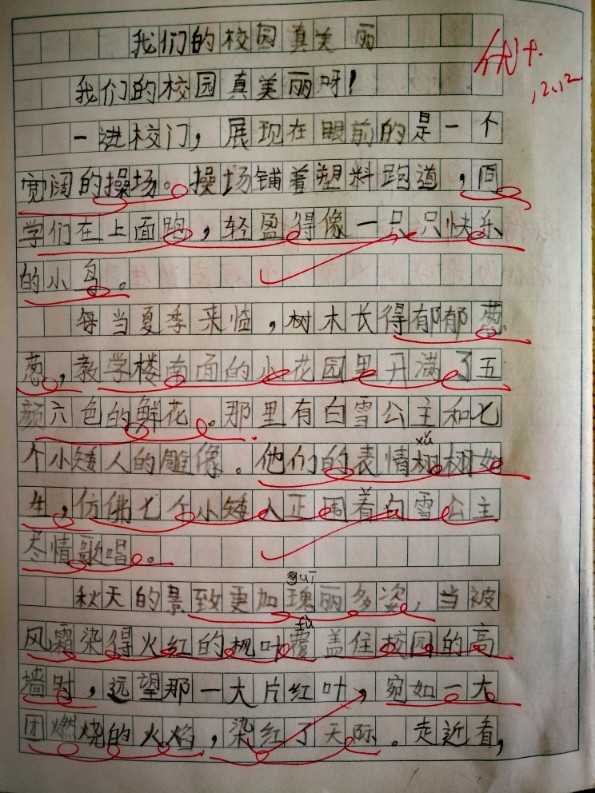 我们的校园真美丽
优+
12.12
我们的校园真美丽呀!
一进校门,展现在眼前的是一个
宽阔的操场。操场铺着塑料跑道,同
学们在上面跑,轻盈得像一只只快乐
的小鸟。
每当夏季来临,树木长得郁郁葱
葱,教学楼南面的小花园里开满了五
颜六色的鲜花。那里有白雪公主和七
xǔ
个小矮人的雕像。他们的表情栩栩如
生,仿佛七个小矮人正围着白雪公主
尽情歌唱。
guī
秋天的景致更加瑰丽多姿,当被
fù
风霜染得火红的枫叶覆盖住校园的高
墙时,远望那一大片红叶,宛如一大
团燃烧的火焰,染红了天际。走近看,